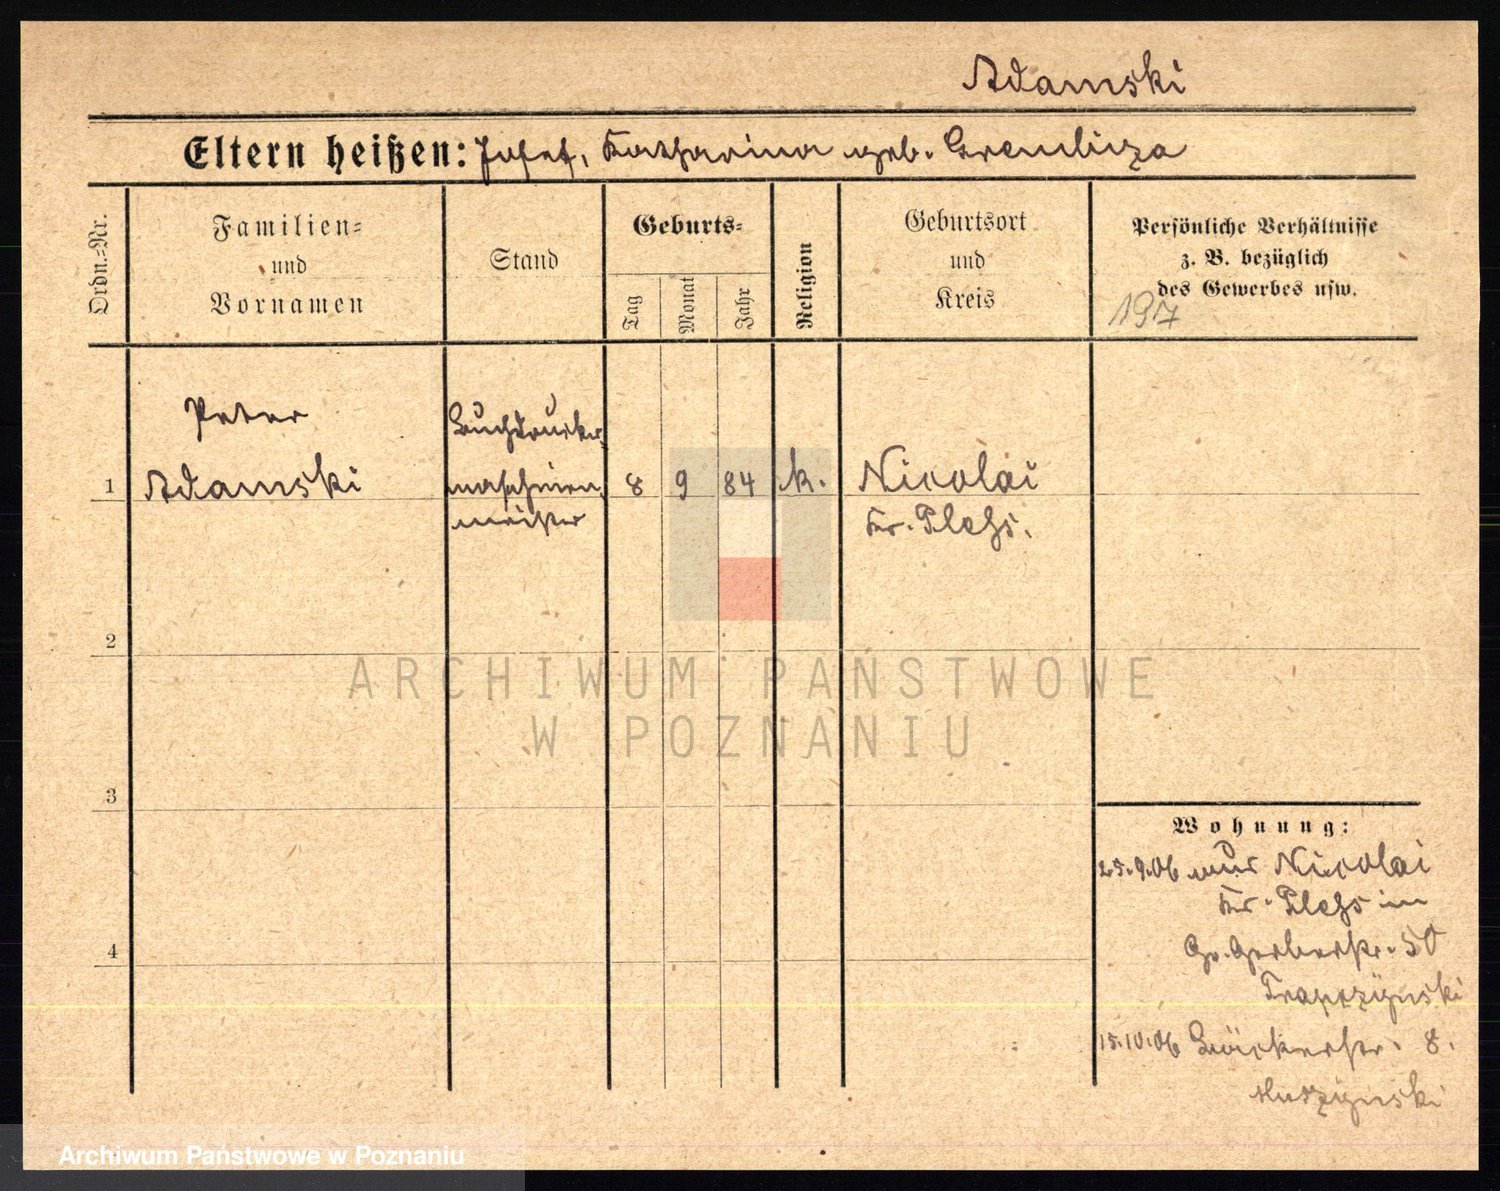 Adamski
Eltern heißen: Josef, Katharina geb. Grembiza
Ordn.-Nr.
Familien-
und
Vornamen
Stand
Geburts-
Tag
Monat
Jahr
Religion
Geburtsort
und
Kreis
Persönliche Verhältnisse
z. B. bezüglich
des Gewerbes usw.
197
Peter
Buchdrucker
1 Adamski maschinen 8 9 84 k. Nicolai
meister Kr. Pleß.
2
ARCHIWUM PAŃSTWOWE
W POZNANIU
3
Wohnung:
25.9.06 aus Nicolai
Kr. Pleß in
4 Gr. Gerberstr. 50
Trapczynski
15.10.06 Bäckerstr. 8.
Archiwum Państwowe w Poznaniu